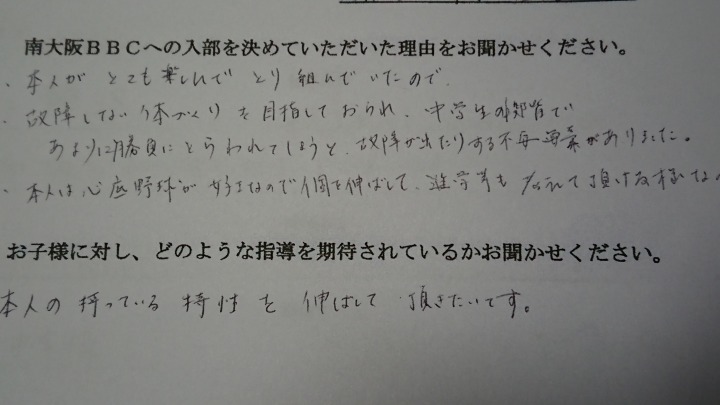 南大阪ＢＢＣへの入部を決めていただいた理由をお聞かせください。
・本人が とても楽しんで とり組んでいたので
・故障しない体づくりを目指しておられ、中学生の段階で
あまりに勝負にとらわれてしまうと、故障が出たりする不安要素がありました。
・本人は心底野球が好きなので個を伸ばして、進学等も 応れて頂ける様な
お子様に対し、どのような指導を期待されているかお聞かせください。
本人の持っている 特性を 伸ばして 頂きたいです。